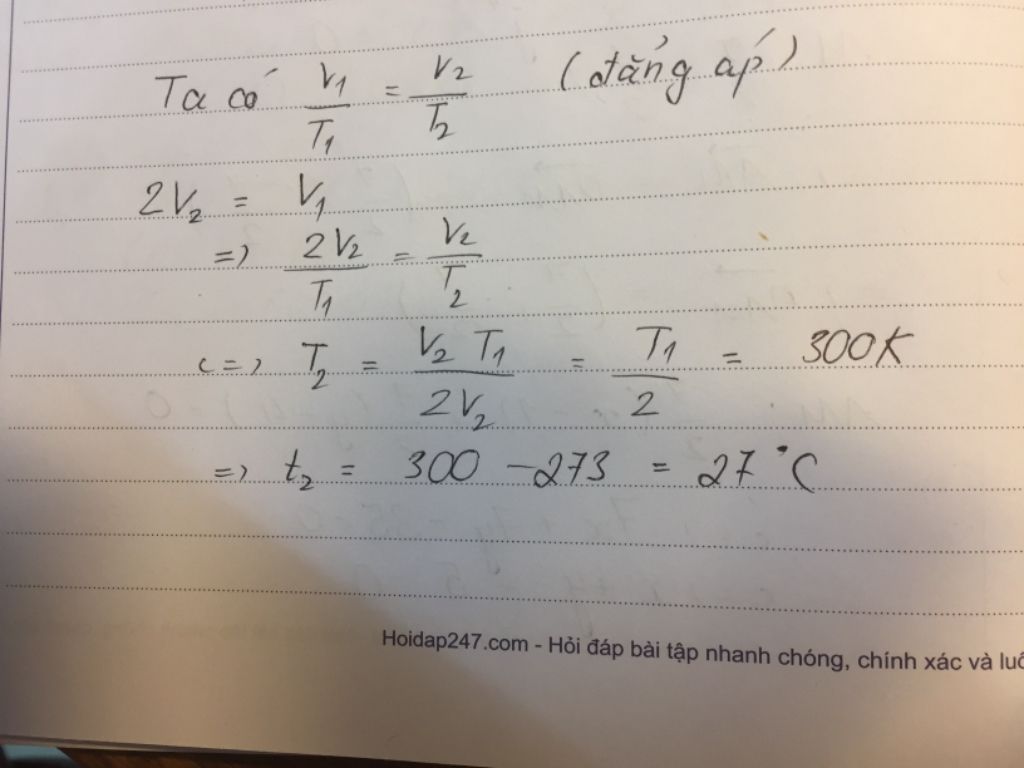 Ta có V₁/T₁ = V₂/T₂ (đẳng áp)
2V₂ = V₁
=> 2V₂/T₁ = V₂/T₂
<=> T₂ = V₂ T₁/2V₂ = T₁/2 = 300K
=> t₂ = 300 - 273 = 27°C
Hoidap247.com - Hỏi đáp bài tập nhanh chóng, chính xác và luô